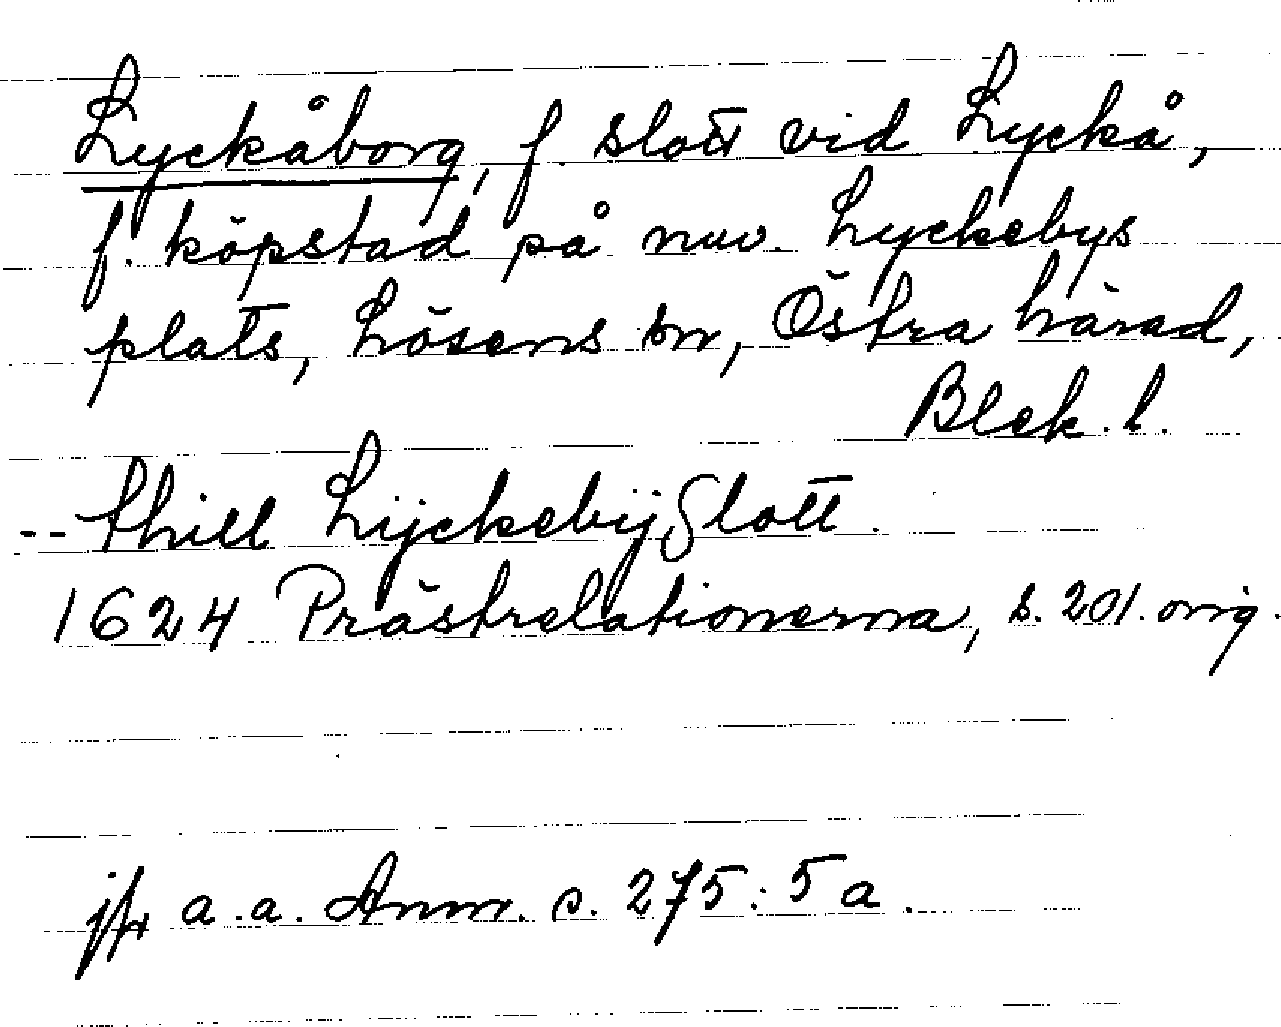 Lyckåborg, f. slott vid Lyckå,
f. köpstad på nuv. Lyckebys
plats, Lösens sn, Östra härad,
Blek. l.
-- thill Lijckebij Slott.
1624 Prästrelationerna, s. 201. orig.
jfr a.a. Anm. s. 275: 5 a.